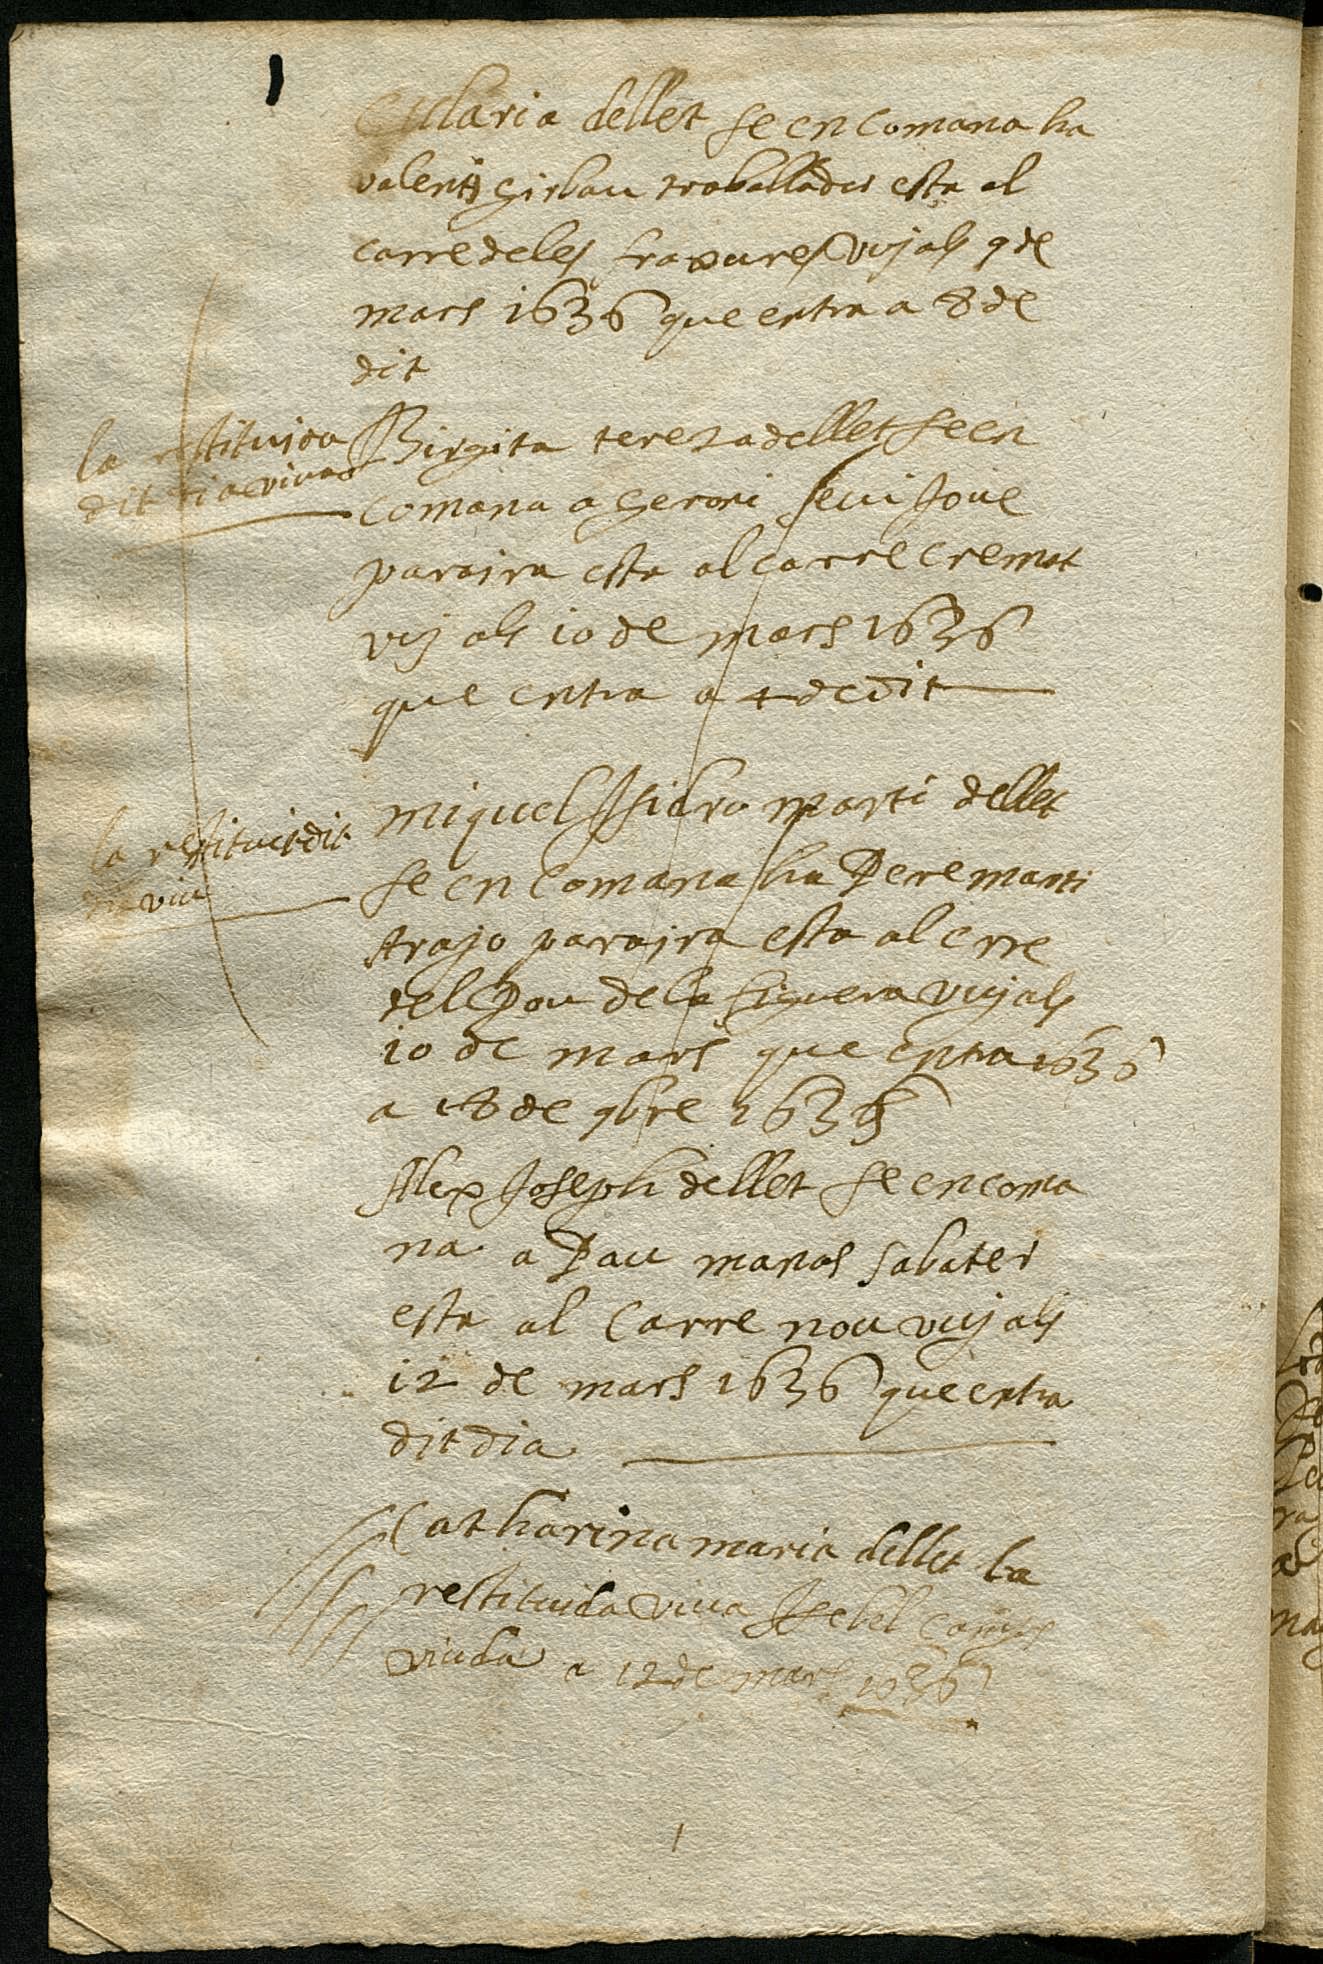 Eularia dellet se encomana ha
valenti girbau traballador esta al
carre de les traxures vuj als 9 de
mars 1636 que entra a 8 de
dit
la restituida
dit dia viva
Birgita tereza dellet se en
comana a geroni sevi Jove
paraira esta al carre cremat
vuj als 10 de mars 1636
que entra a 4 de dit
la restituit dit
dia viu
miquel Isidro marti dellet
se en comana ha Pere marti
paraira esta al crre
del Pou de la figuera vuj als
10 de mars que entra 1636
a 18 de 9bre 1635
Alex Joseph dellet se encoma
na a Pau manas sabater
esta al carre nou vuj als
12 de mars 1636 que entra
dit dia
Catharina maria dellet la
restituida viva Isebel
viuda a 12 de mars 1636